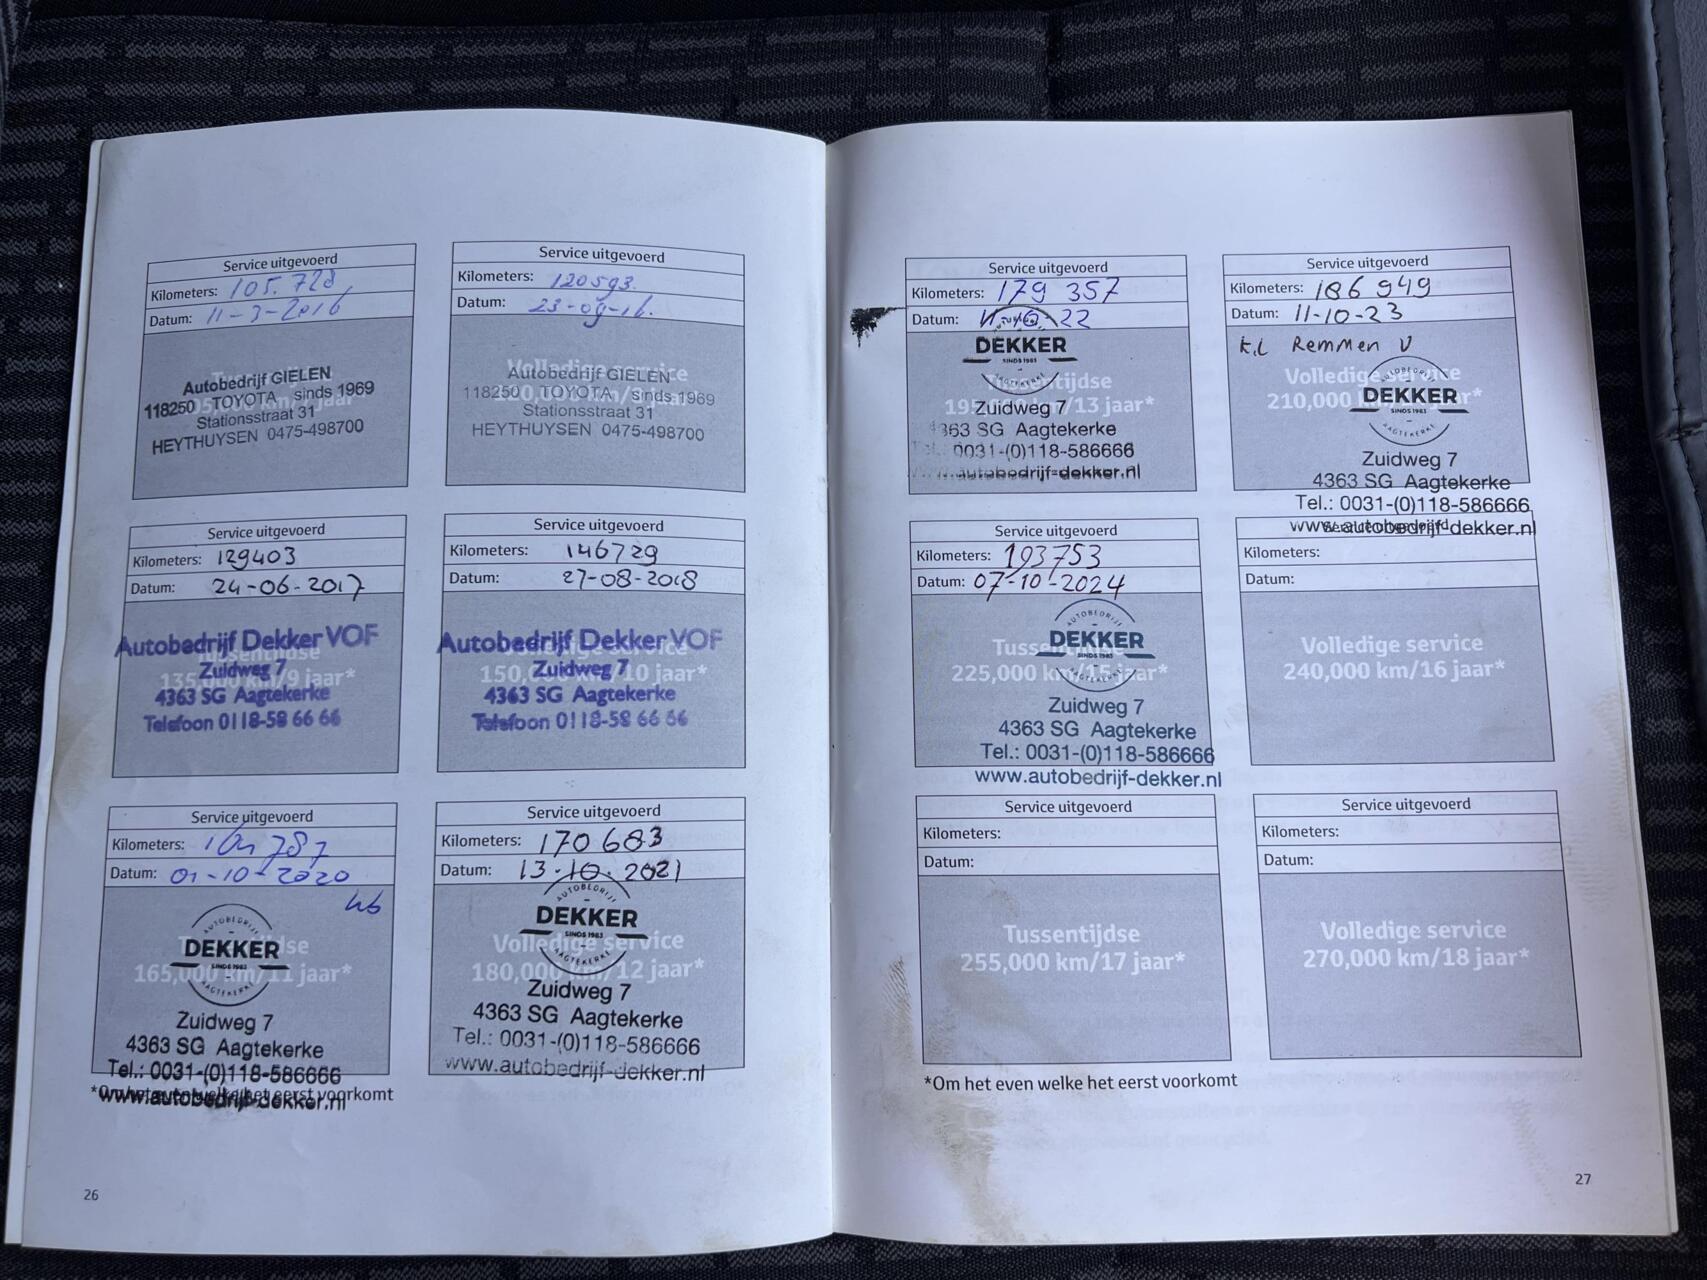 Service uitgevoerd
Kilometers: 105.728
Datum: 11-3-2016
Autobedrijf GIELEN
118250 TOYOTA sinds 1969
Stationsstraat 31
HEYTHUYSEN 0475-498700
Service uitgevoerd
Kilometers: 120593.
Datum: 23-09-16.
Volledige service
Autobedrijf GIELEN
118250 TOYOTA sinds 1969
Stationsstraat 31
HEYTHUYSEN 0475-498700
Service uitgevoerd
Kilometers: 129403
Datum: 24-06-2017
Autobedrijf Dekker VOF
Tussentijdse
Zuidweg 7
135,000 km/9 jaar*
4363 SG Aagtekerke
Telefoon 0118-58 66 66
Service uitgevoerd
Kilometers: 146729
Datum: 27-08-2018
Autobedrijf Dekker VOF
Zuidweg 7
150,000 km/10 jaar*
4363 SG Aagtekerke
Telefoon 0118-58 66 66
Service uitgevoerd
Kilometers: 787
Datum: 01-10-2020
AUTOBEDRIJF
DEKKER
Tussentijdse
SINDS 1983
165,000 km/11 jaar*
AAGTEKERKE
Zuidweg 7
4363 SG Aagtekerke
Tel.: 0031-(0)118-586666
www.autobedrijf-dekker.nl
*Om het even welke het eerst voorkomt
Service uitgevoerd
Kilometers: 170 683
Datum: 13-10-2021
AUTOBEDRIJF
DEKKER
SINDS 1983
Volledige service
AAGTEKERKE
180,000 km/12 jaar*
Zuidweg 7
4363 SG Aagtekerke
Tel.: 0031-(0)118-586666
www.autobedrijf-dekker.nl
26
Service uitgevoerd
Kilometers: 179 357
Datum: 11-10-22
DEKKER
SINDS 1983
Tussentijdse
AAGTEKERKE
195,000 km/13 jaar*
Zuidweg 7
4363 SG Aagtekerke
Tel.: 0031-(0)118-586666
www.autobedrijf-dekker.nl
Service uitgevoerd
Kilometers: 186 949
Datum: 11-10-23
K.L Remmen V
Volledige service
AUTOBEDRIJF
DEKKER
210,000 km/
SINDS 1983
AAGTEKERKE
Zuidweg 7
4363 SG Aagtekerke
Tel.: 0031-(0)118-586666
www.autobedrijf-dekker.nl
Service uitgevoerd
Kilometers: 193753
Datum: 07-10-2024
AUTOBEDRIJF
DEKKER
Tussentijdse
SINDS 1983
225,000 km/15 jaar*
AAGTEKERKE
Zuidweg 7
4363 SG Aagtekerke
Tel.: 0031-(0)118-586666
www.autobedrijf-dekker.nl
Service uitgevoerd
Kilometers:
Datum:
Volledige service
240,000 km/16 jaar*
Service uitgevoerd
Kilometers:
Datum:
Tussentijdse
255,000 km/17 jaar*
Service uitgevoerd
Kilometers:
Datum:
Volledige service
270,000 km/18 jaar*
*Om het even welke het eerst voorkomt
27